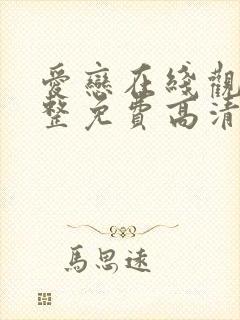 愛戀在綫觀
整免費高清
馬思遠